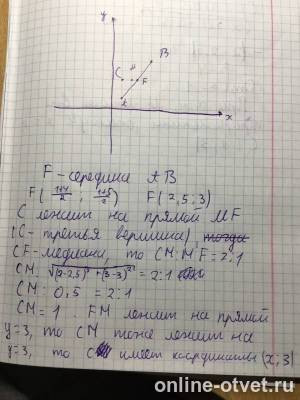 y
B
C M F
A
x
F - середина AB
F( (1+4)/2 ; (1+5)/2 ) F(2,5 ; 3)
C лежит на прямой MF
(C - третья вершина)
CF - медиана, то CM:MF = 2:1
CM: √((2-2,5)² + (3-3)²) = 2:1
CM: 0,5 = 2:1
CM = 1. FM лежит на прямой
y=3, то CM тоже лежит на
y=3, то C имеет координаты (x,3)
online-otvet.ru